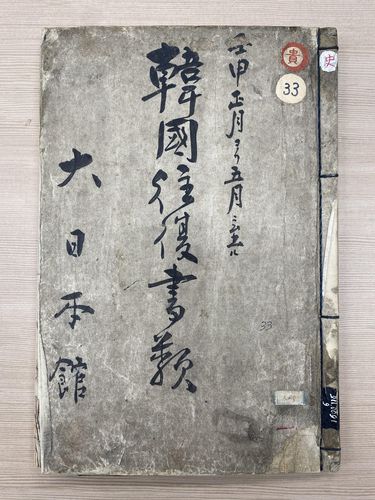 史
貴
33
壬申正月ヨリ五月ニ至ル
韓國往復書類
大日本館
33